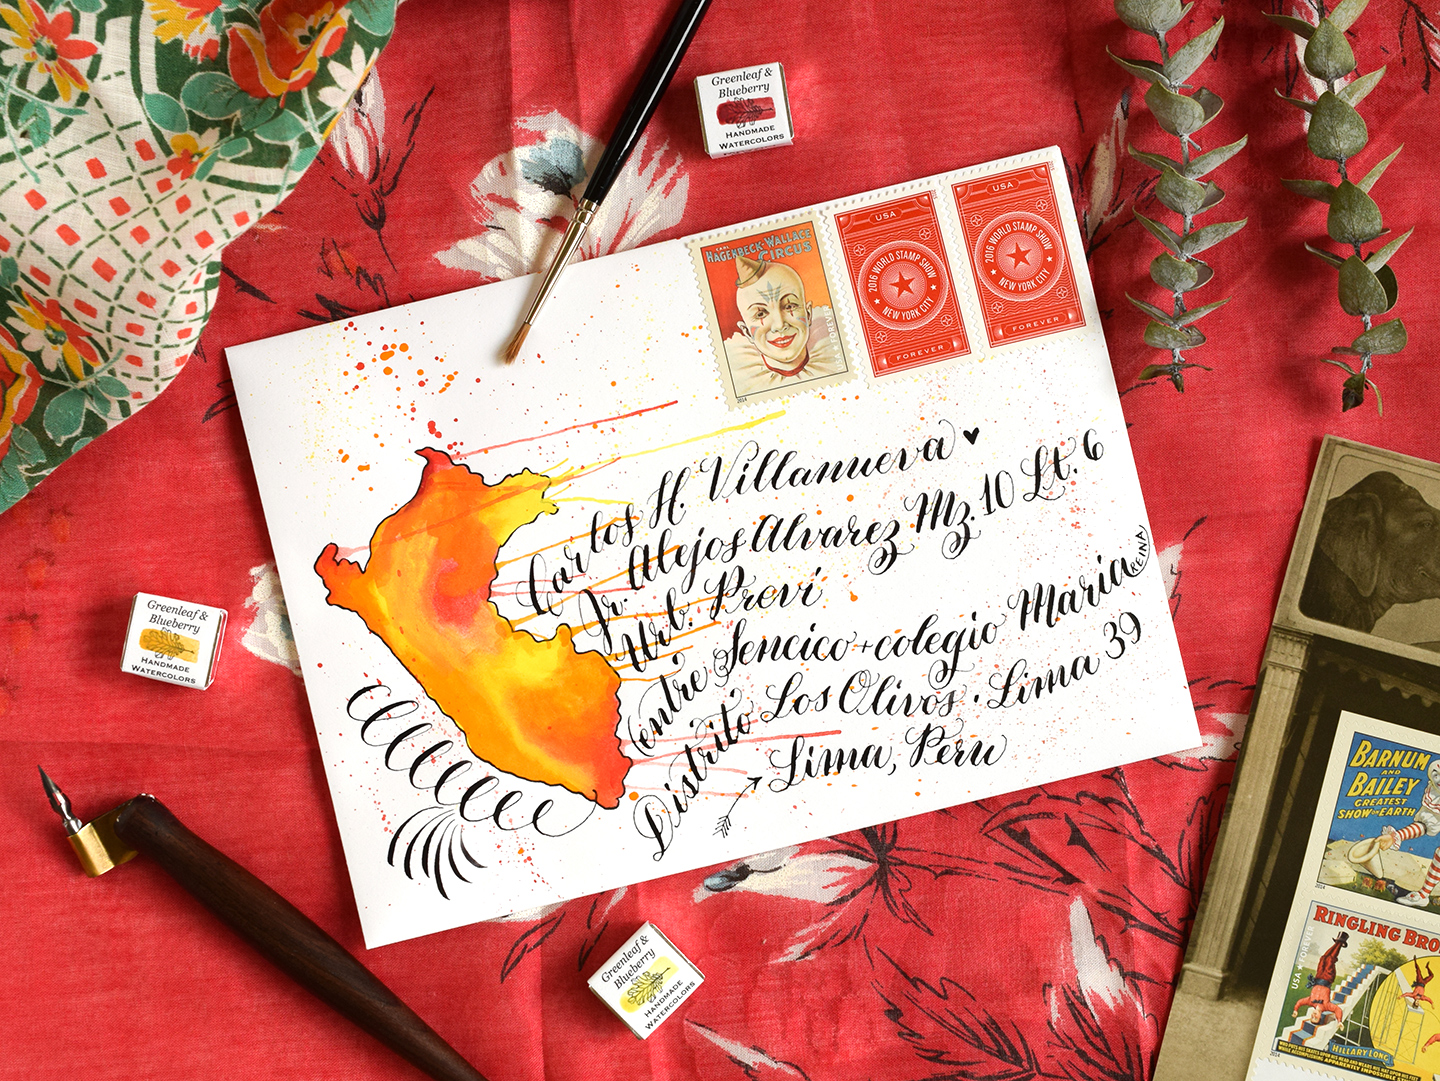 Greenleaf &
Blueberry
HANDMADE
WATERCOLORS
CARL
HAGENBECK-WALLACE
CIRCUS
FOREVER
2014
USA
2016 WORLD STAMP SHOW
NEW YORK CITY
FOREVER
USA
2016 WORLD STAMP SHOW
NEW YORK CITY
FOREVER
Carlos H. Villanueva
Jr. Alejos Alvarez Mz. 10 Lt. 6
Urb. Previ
entre Sencico + colegio Maria REINA
Distrito Los Olivos · Lima 39
Lima, Peru
Greenleaf &
Blueberry
HANDMADE
WATERCOLORS
Greenleaf &
Blueberry
HANDMADE
WATERCOLORS
BARNUM
AND
BAILEY
GREATEST
SHOW ON EARTH
2014
RINGLING BRO
USA FOREVER
HILLARY LONG
WHO POSES HIS FEATS UPON HIS HEAD AND WEARS HIS HAT UPON HIS FEET
WHILE ACCOMPLISHING APPARENTLY IMPOSSIBLE
2014